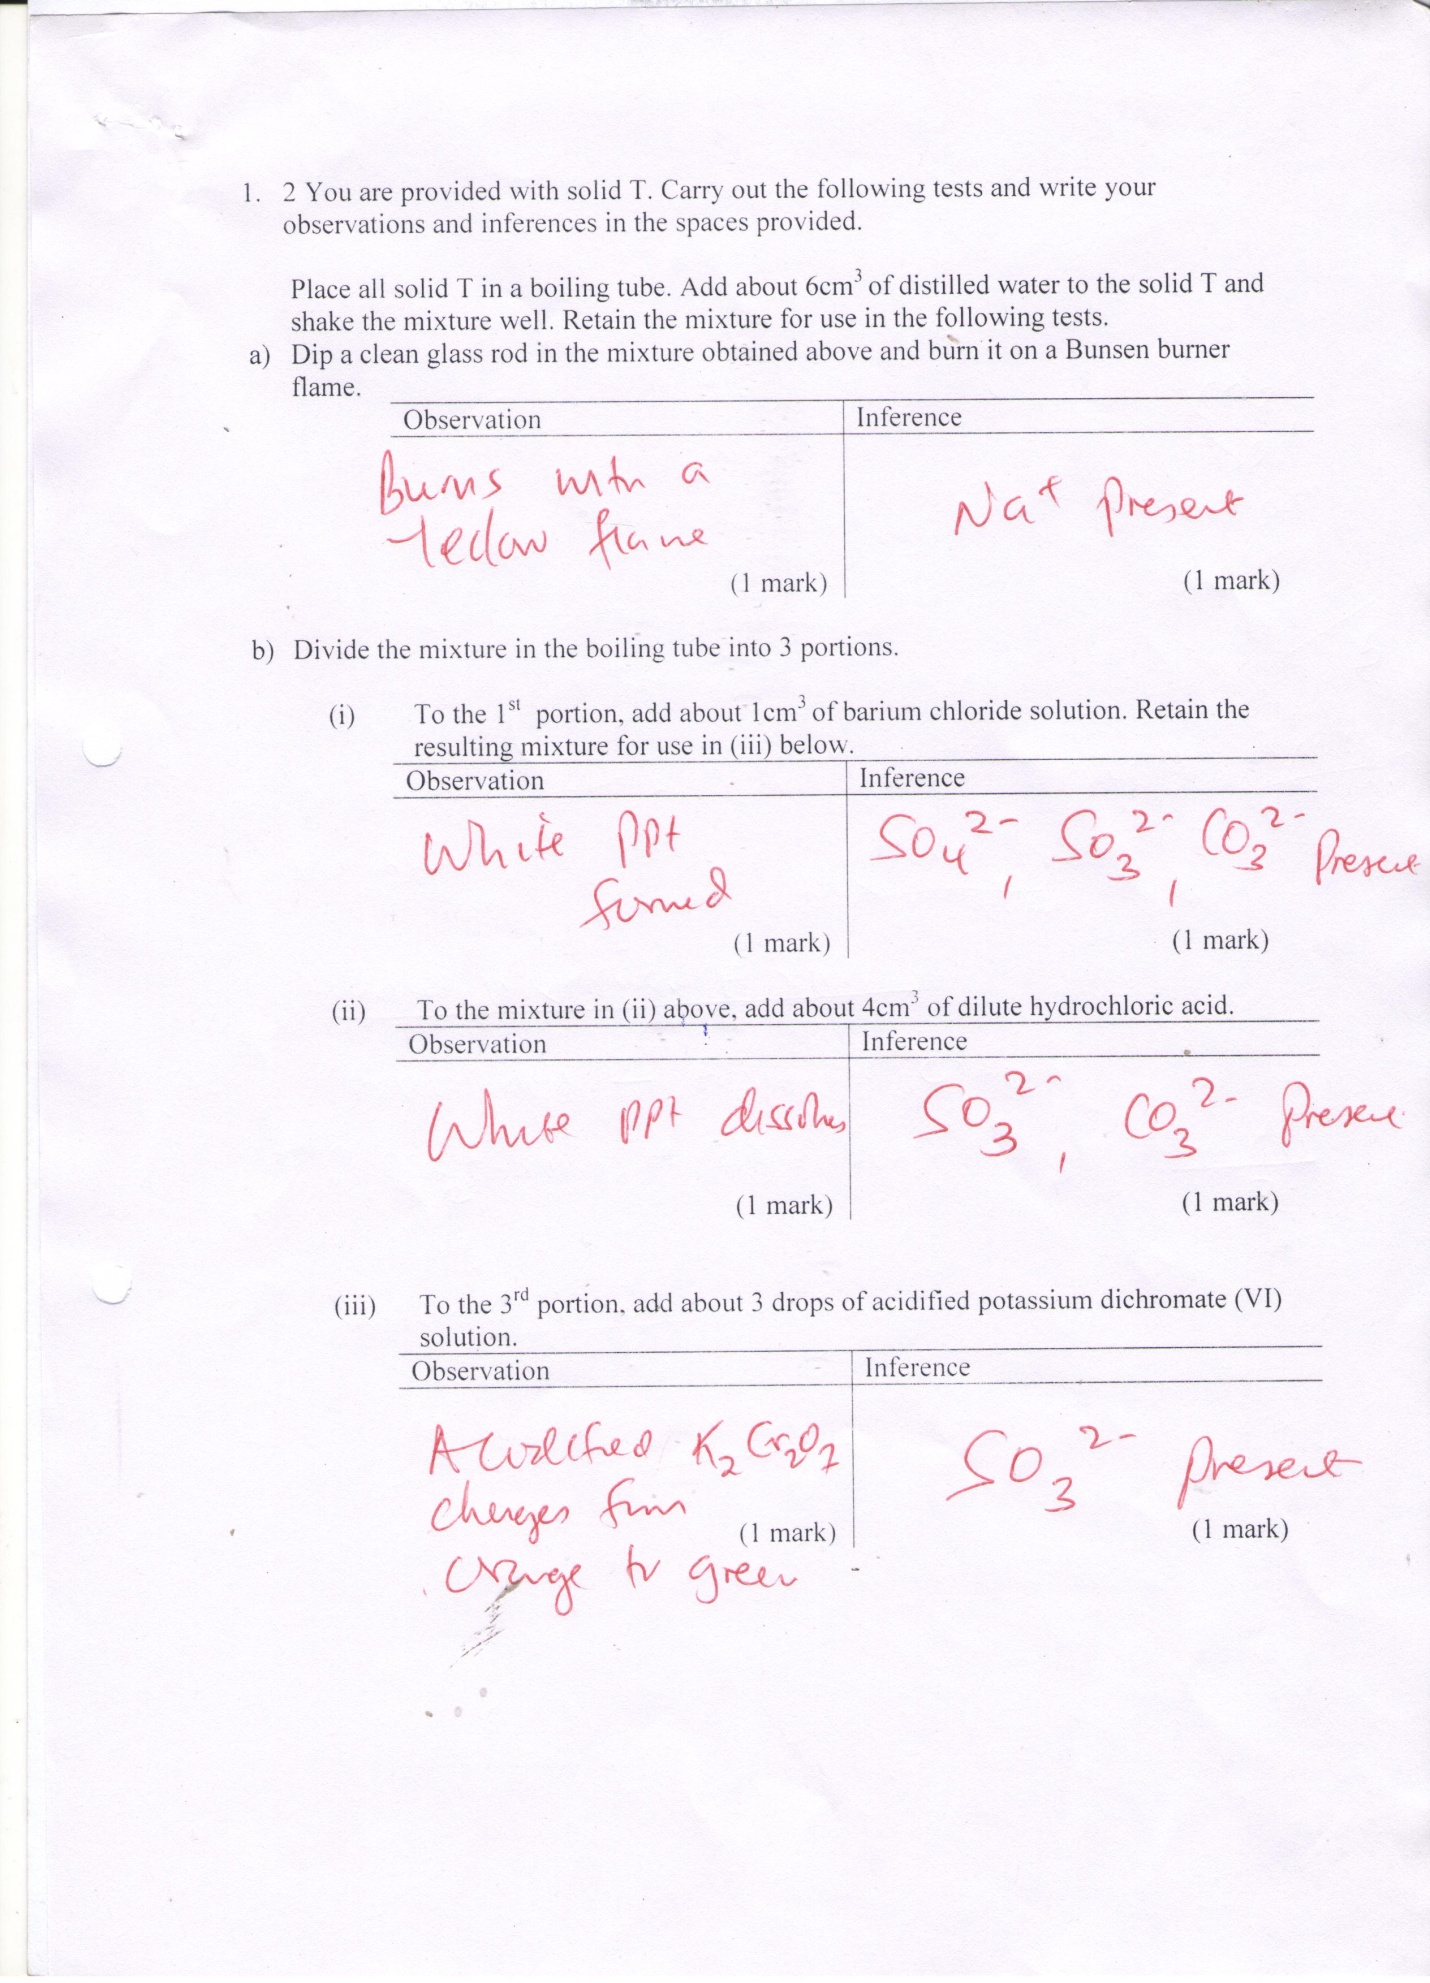 1. 2 You are provided with solid T. Carry out the following tests and write your
observations and inferences in the spaces provided.
Place all solid T in a boiling tube. Add about 6cm³ of distilled water to the solid T and
shake the mixture well. Retain the mixture for use in the following tests.
a) Dip a clean glass rod in the mixture obtained above and burn it on a Bunsen burner
flame.
Observation Inference
Burns with a
Yellow flame
Na⁺ Present
(1 mark) (1 mark)
b) Divide the mixture in the boiling tube into 3 portions.
(i) To the 1st portion, add about 1cm³ of barium chloride solution. Retain the
resulting mixture for use in (iii) below.
Observation Inference
White ppt
formed
SO₄²⁻, SO₃²⁻, CO₃²⁻ Present
(1 mark) (1 mark)
(ii) To the mixture in (ii) above, add about 4cm³ of dilute hydrochloric acid.
Observation Inference
White ppt dissolves
SO₃²⁻, CO₃²⁻ Present
(1 mark) (1 mark)
(iii) To the 3rd portion, add about 3 drops of acidified potassium dichromate (VI)
solution.
Observation Inference
Acidified K₂Cr₂O₇
changes from
orange to green
SO₃²⁻ present
(1 mark) (1 mark)